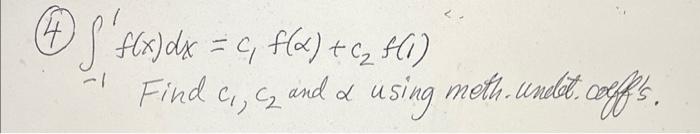 ④ ∫₋₁¹ f(x)dx = c₁ f(α) + c₂ f(1)
Find c₁, c₂ and α using meth. undet. coeff's.